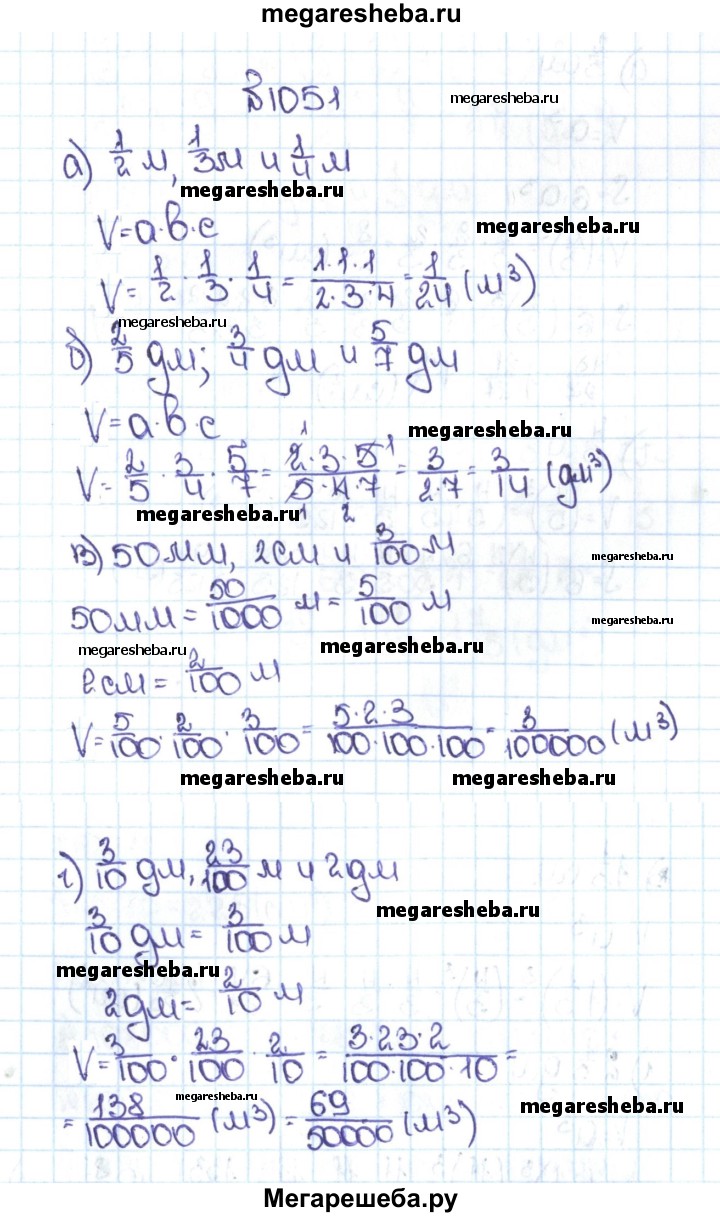 megaresheba.ru
№1051
megaresheba.ru
а) 1/2 м, 1/3 м и 1/4 м
megaresheba.ru
V=a·b·c
megaresheba.ru
V= 1/2 · 1/3 · 1/4 = 1·1·1/2·3·4 = 1/24 (м³)
megaresheba.ru
б) 2/5 дм; 3/4 дм и 5/7 дм
V=a·b·c
megaresheba.ru
V= 2/5 · 3/4 · 5/7 = 2·3·5/5·4·7 = 3/2·7 = 3/14 (дм³)
megaresheba.ru
в) 50 мм, 2 см и 3/100 м
megaresheba.ru
50 мм = 50/1000 м = 5/100 м
megaresheba.ru
megaresheba.ru
megaresheba.ru
2 см = 2/100 м
V= 5/100 · 2/100 · 3/100 = 5·2·3/100·100·100 = 3/100000 (м³)
megaresheba.ru
megaresheba.ru
г) 3/10 дм, 23/100 м и 2 дм
megaresheba.ru
3/10 дм = 3/100 м
megaresheba.ru
2 дм = 2/10 м
V= 3/100 · 23/100 · 2/10 = 3·23·2/100·100·10 =
megaresheba.ru
megaresheba.ru
= 138/100000 (м³) = 69/50000 (м³)
Мегарешеба.ру